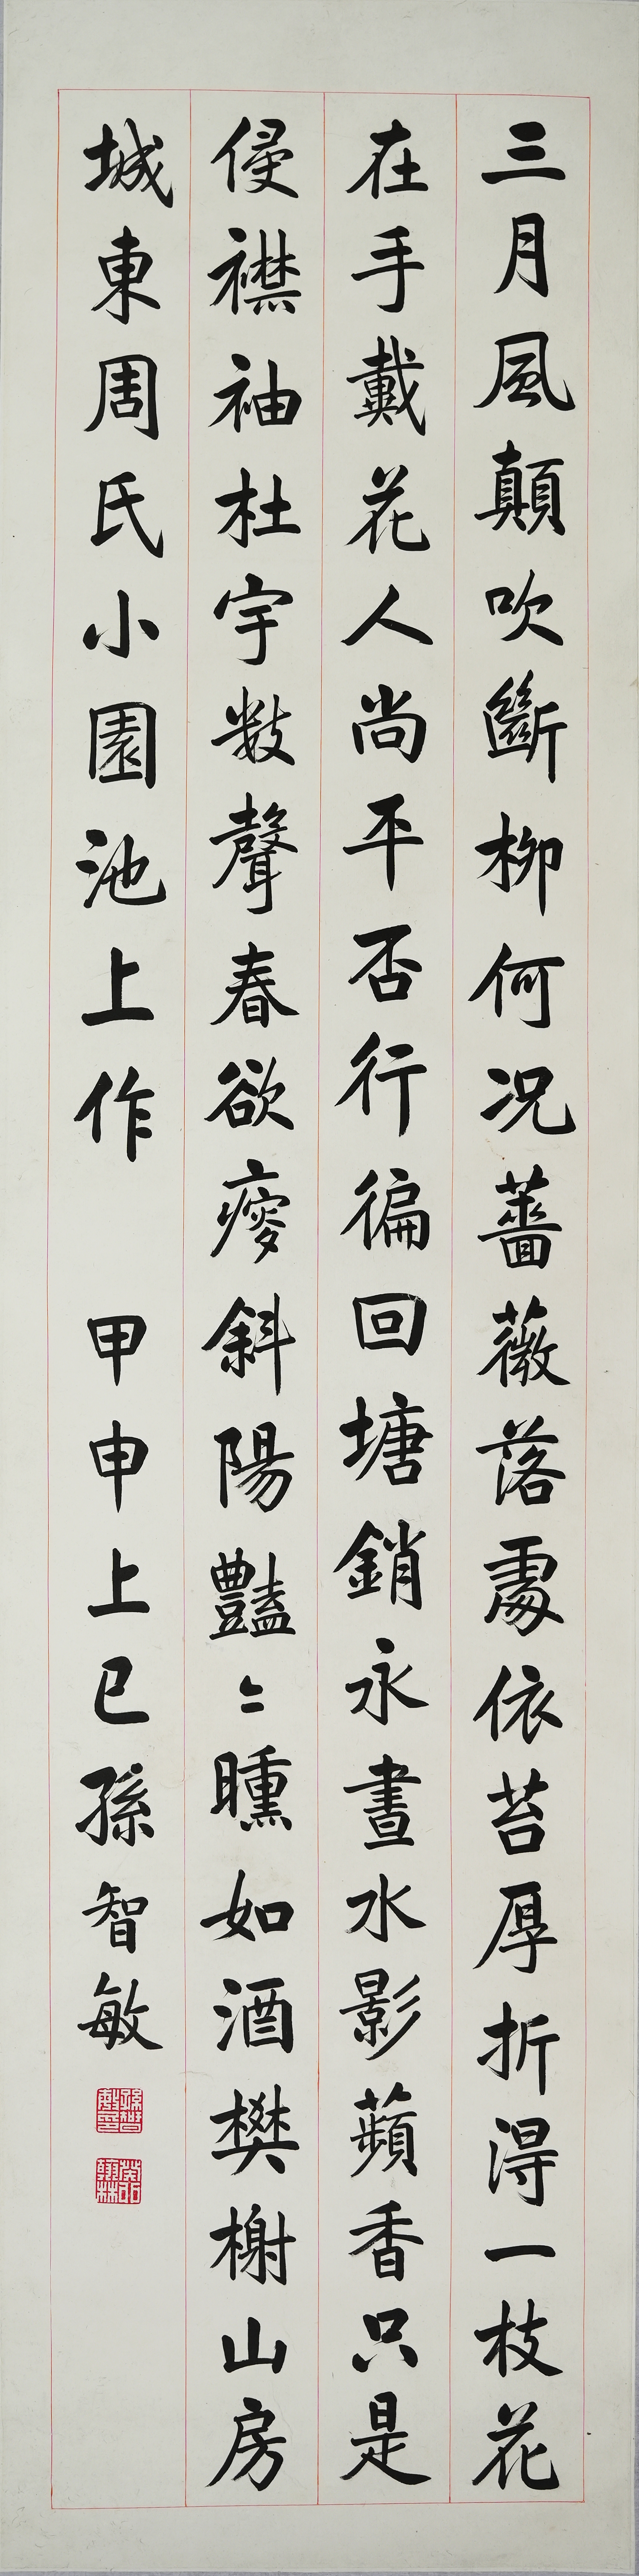 三月風顛吹斷柳何况薔薇落處依苔厚折得一枝花
在手戴花人尚平否行徧回塘銷永晝水影蘋香只是
侵襟袖杜宇數聲春欲瘦斜陽豔〻曛如酒樊榭山房
城東周氏小園池上作 甲申上巳孫智敏